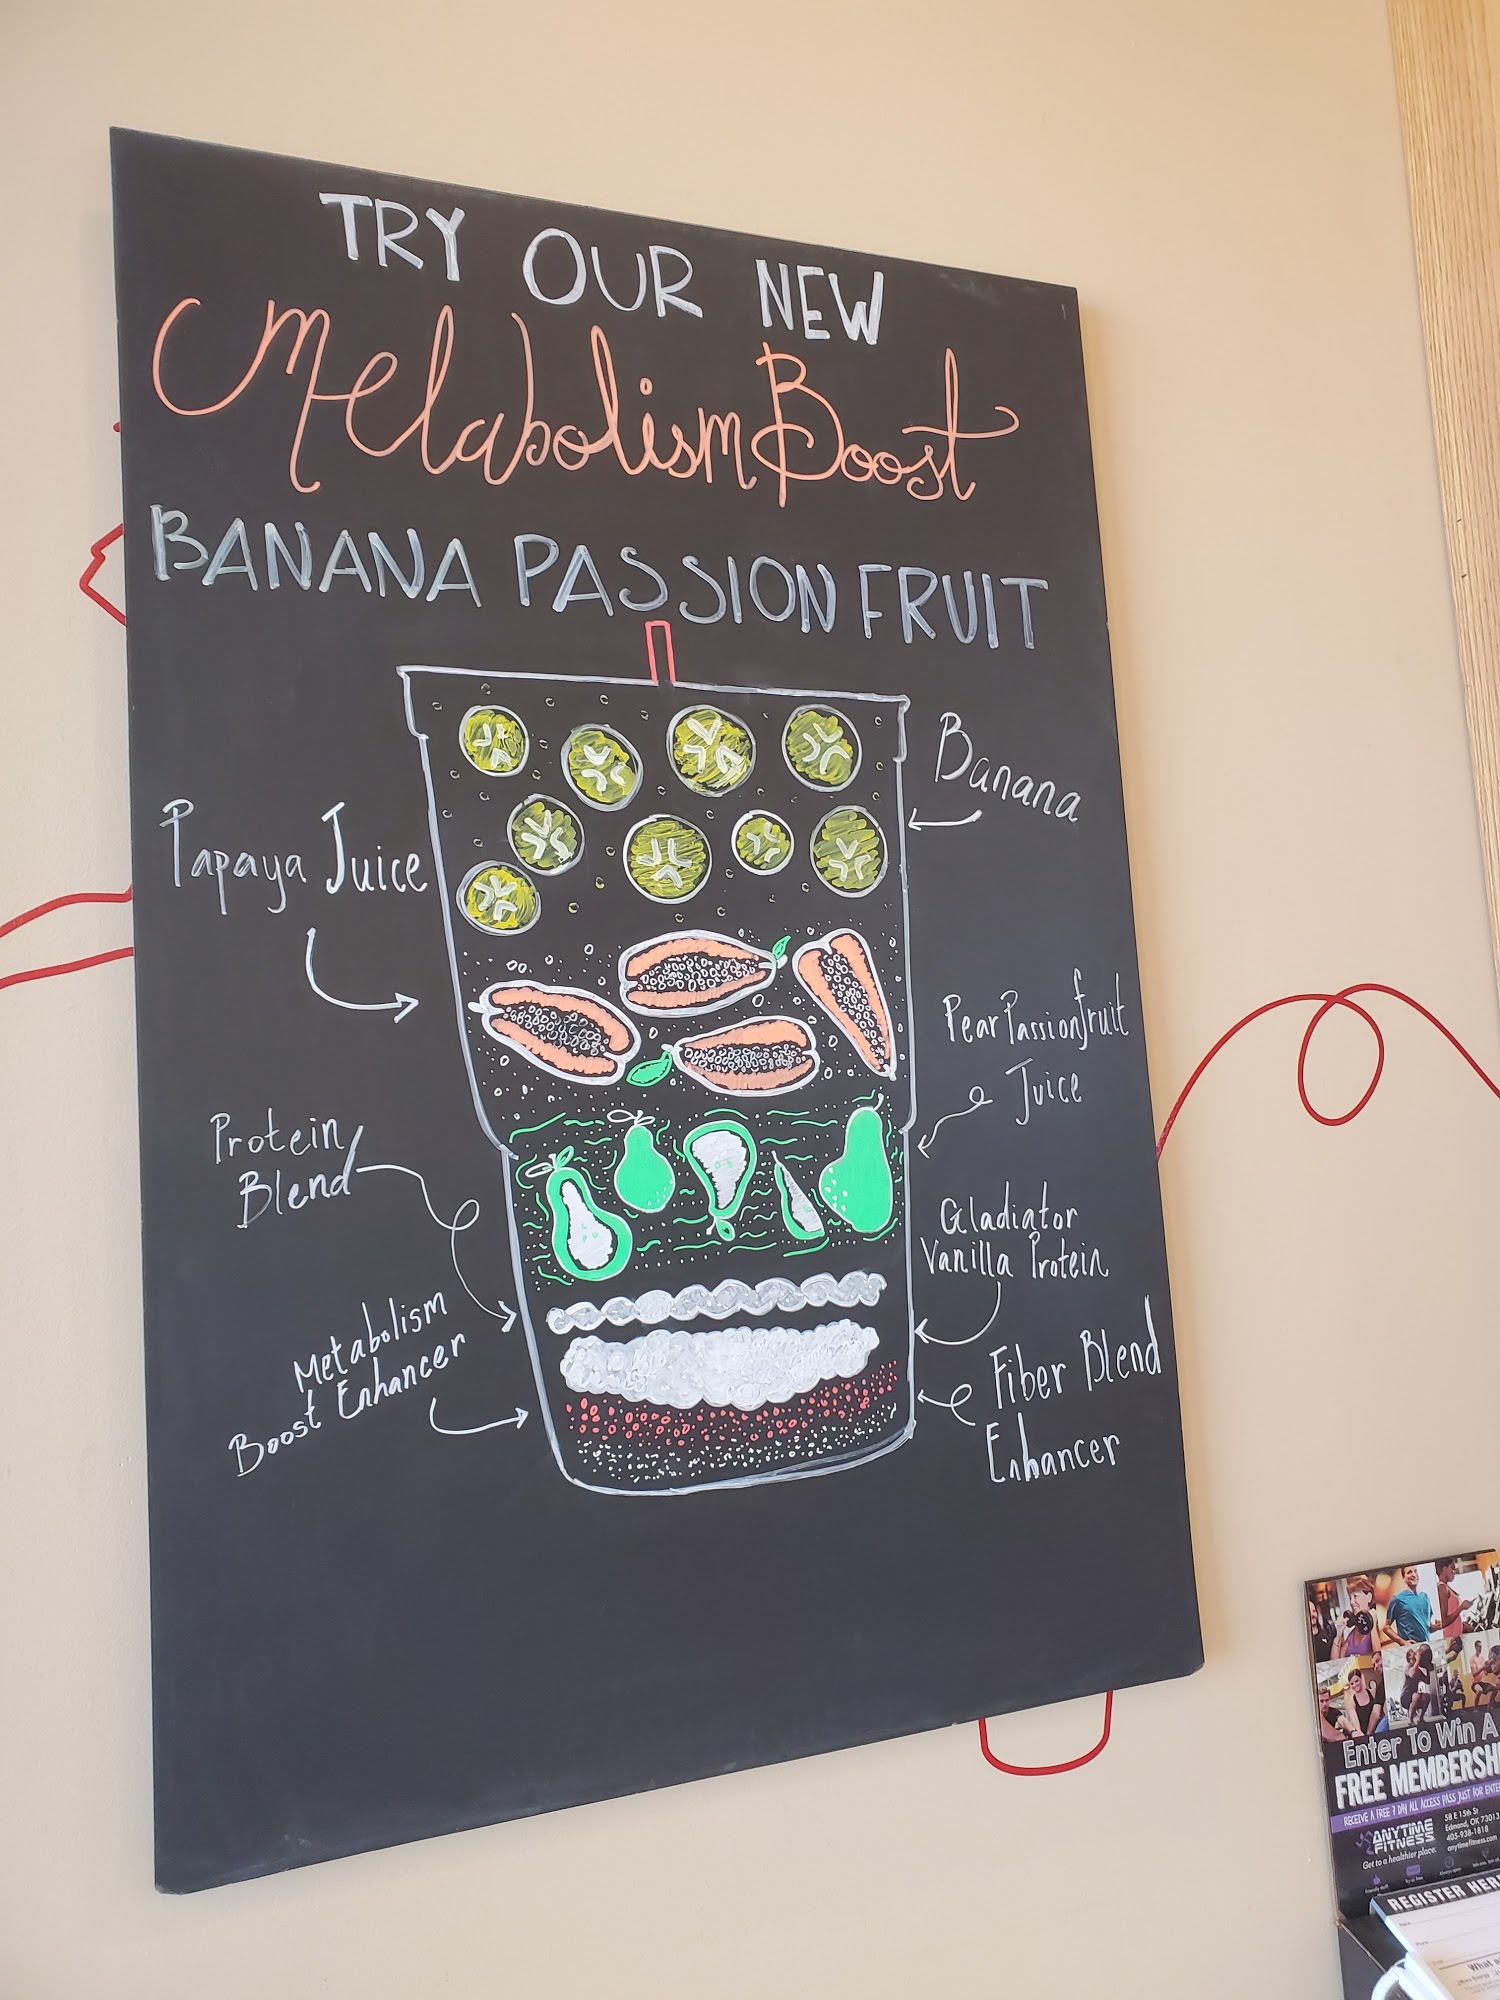 TRY OUR NEW
Metabolism Boost
BANANA PASSION FRUIT
Banana
Papaya Juice
Pear Passionfruit
Juice
Protein
Blend
Gladiator
Vanilla Protein
Metabolism
Boost Enhancer
Fiber Blend
Enhancer
Enter To Win A
FREE MEMBERSH
RECEIVE A FREE 7 DAY ALL ACCESS PASS JUST FOR ENTE
ANYTIME
FITNESS
Get to a healthier place.
58 E 15th St
Edmond, OK 73013
405-938-1818
anytimefitness.com
REGISTER HER